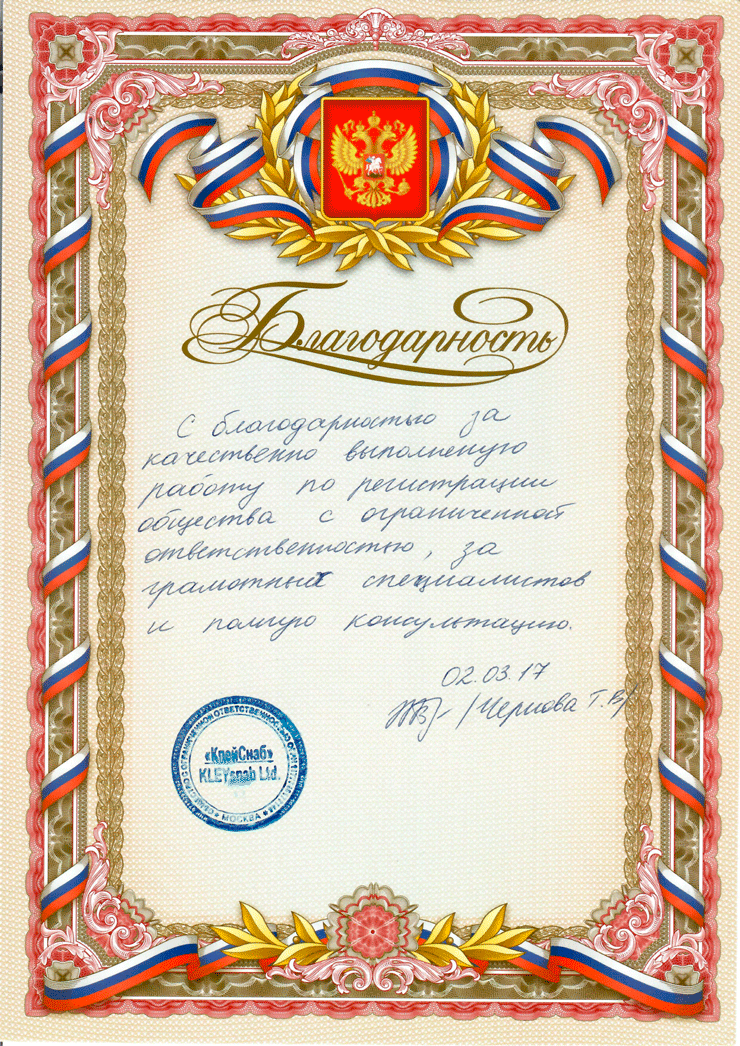 Благодарность
С благодарностью за
качественно выполненую
работу по регистрации
общества с ограниченной
ответственностью, за
грамотных специалистов
и полную консультацию.
02.03.17
/Чернова Т.В/
ОБЩЕСТВО С ОГРАНИЧЕННОЙ ОТВЕТСТВЕННОСТЬЮ
«КлейСнаб»
KLEYsnab Ltd.
МОСКВА